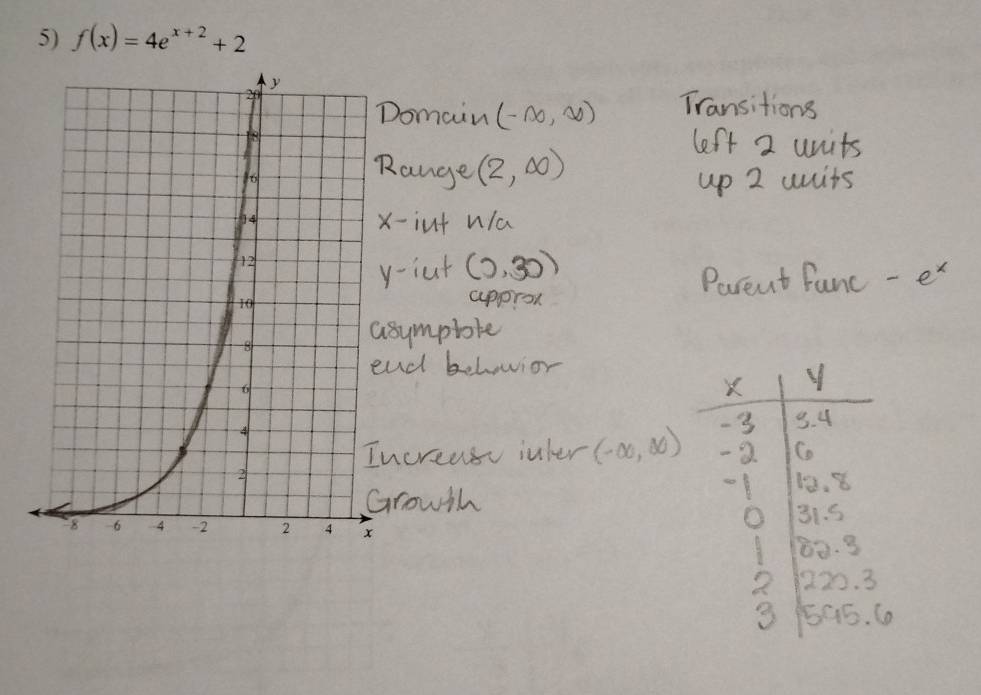 5) f(x) = 4e^{x+2} + 2
y
20
18
16
14
12
10
8
6
4
2
-8 -6 -4 -2 2 4 x
Domain (-∞, ∞)
Range (2, ∞)
x-int n/a
y-int (0, 30)
approx
asymptote
end behavior
Increase inter (-∞, ∞)
Growth
Transitions
left 2 units
up 2 units
Parent func - e^x
x | y
-3 | 3.4
-2 | 6
-1 | 12.8
0 | 31.5
1 | 82.3
2 | 220.3
3 | 595.6